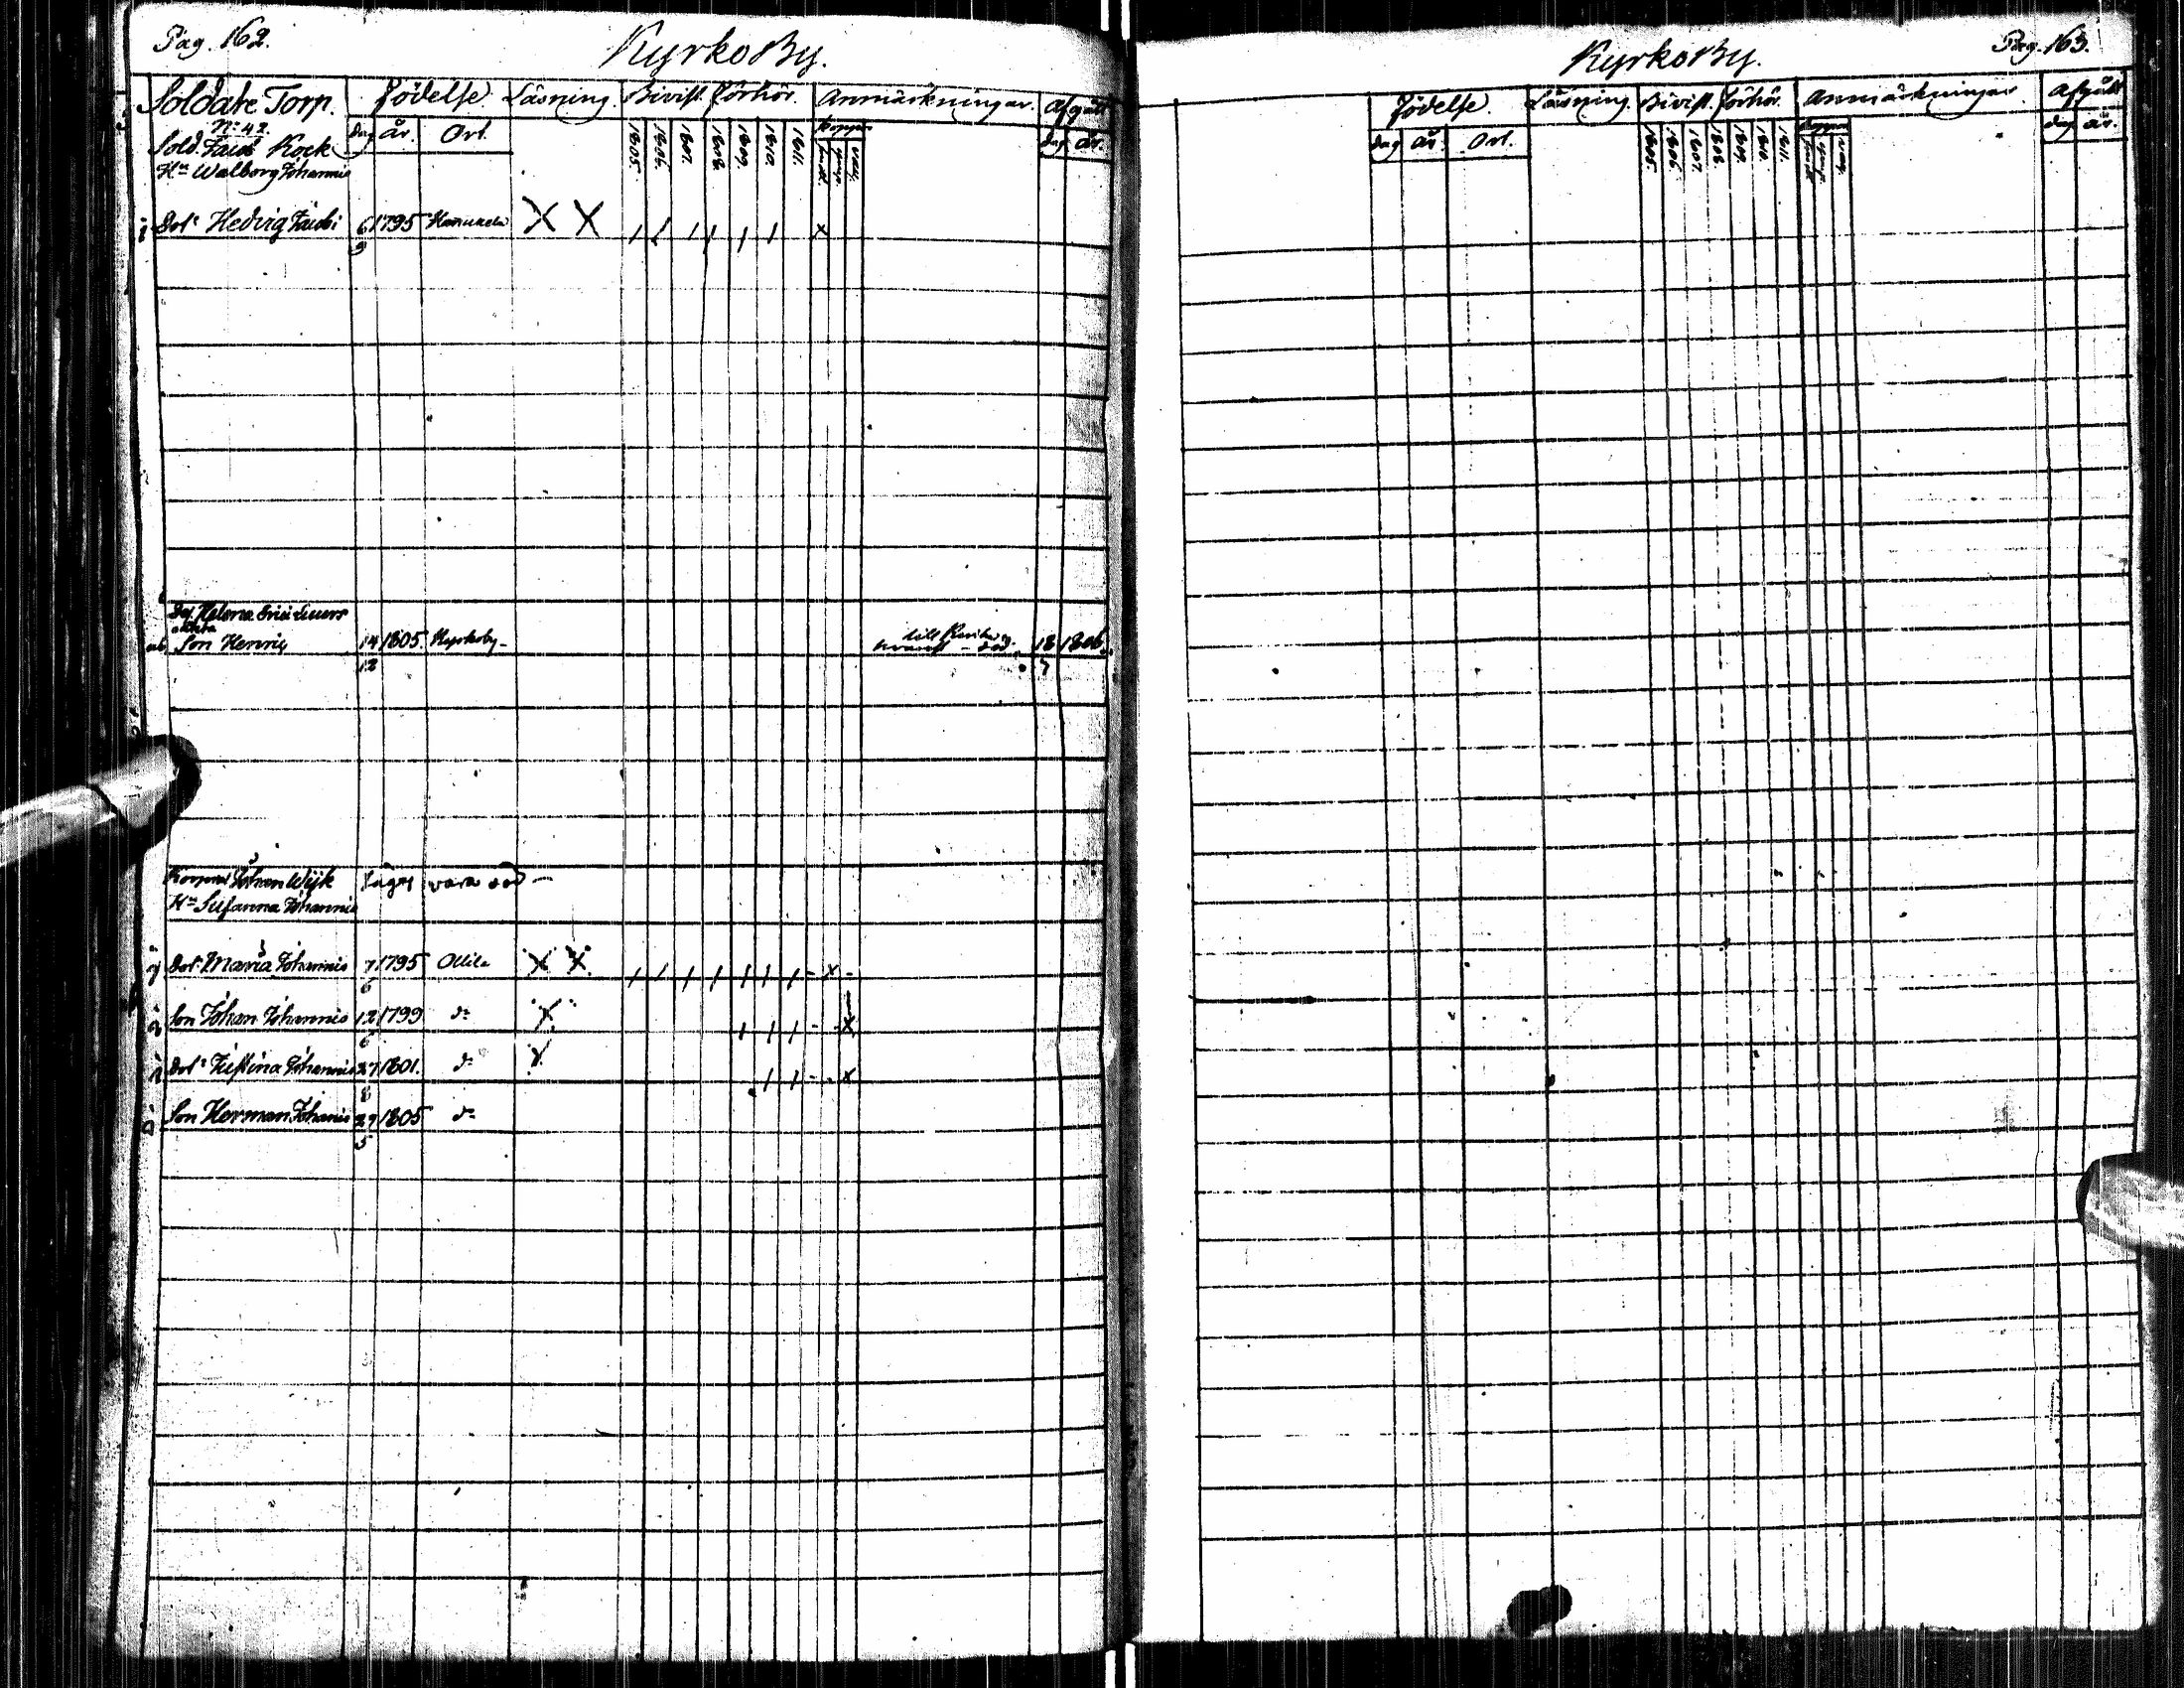 Pag. 162.
KyrkoBy.
Soldate Torp.
Födelse. Läsning. Bivist. förhör. Anmärkningar. Afgått
No: 42.
dag år. Ort. 1805. 1806. 1807. 1808. 1809. 1810. 1811. Koppor dag år.
Sold. Jacob Kock
Hn Walborg Johannis
Dotr Hedvig Jacobi 6/9 1795 X X / / / / / / x
Helena
Son Henric 14/12 1805. Kyrkoby - till
död 18/7 1806.
Korporal Johan Wijk säges vara död -
Hn Susanna Johannis
Dotr Maria Johannis 7/6 1795 Ollila X X / / / / / / / - x -
Son Johan Johannis 12/6 1799 do X / / / - - x
Dotr Justina Johannis 27/8 1801. do X / / - - x
Son Herman Johannis 29/5 1805 do
KyrkoBy.
Pag. 163.
Födelse. Läsning. Bivist. förhör. Anmärkningar Afgått
dag år. Ort. 1805. 1806. 1807. 1808. 1809. 1810. 1811. dag år.